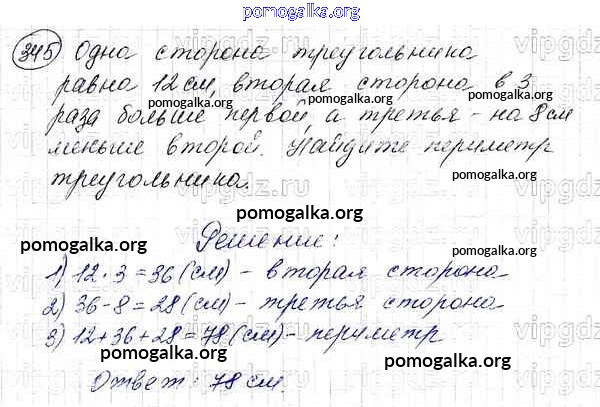 pomogalka.org
345 Одна сторона треугольника
равна 12 см, вторая сторона в 3
pomogalka.org pomogalka.org
раза больше первой, а третья - на 8 см
меньше второй. Найдите периметр
pomogalka.org
треугольника.
pomogalka.org
Решение:
pomogalka.org pomogalka.org
1) 12 · 3 = 36 (см) - вторая сторона
2) 36 - 8 = 28 (см) - третья сторона
pomogalka.org
3) 12 + 36 + 28 = 78 (см) - периметр
pomogalka.org pomogalka.org
Ответ: 78 см.
pomogalka.org